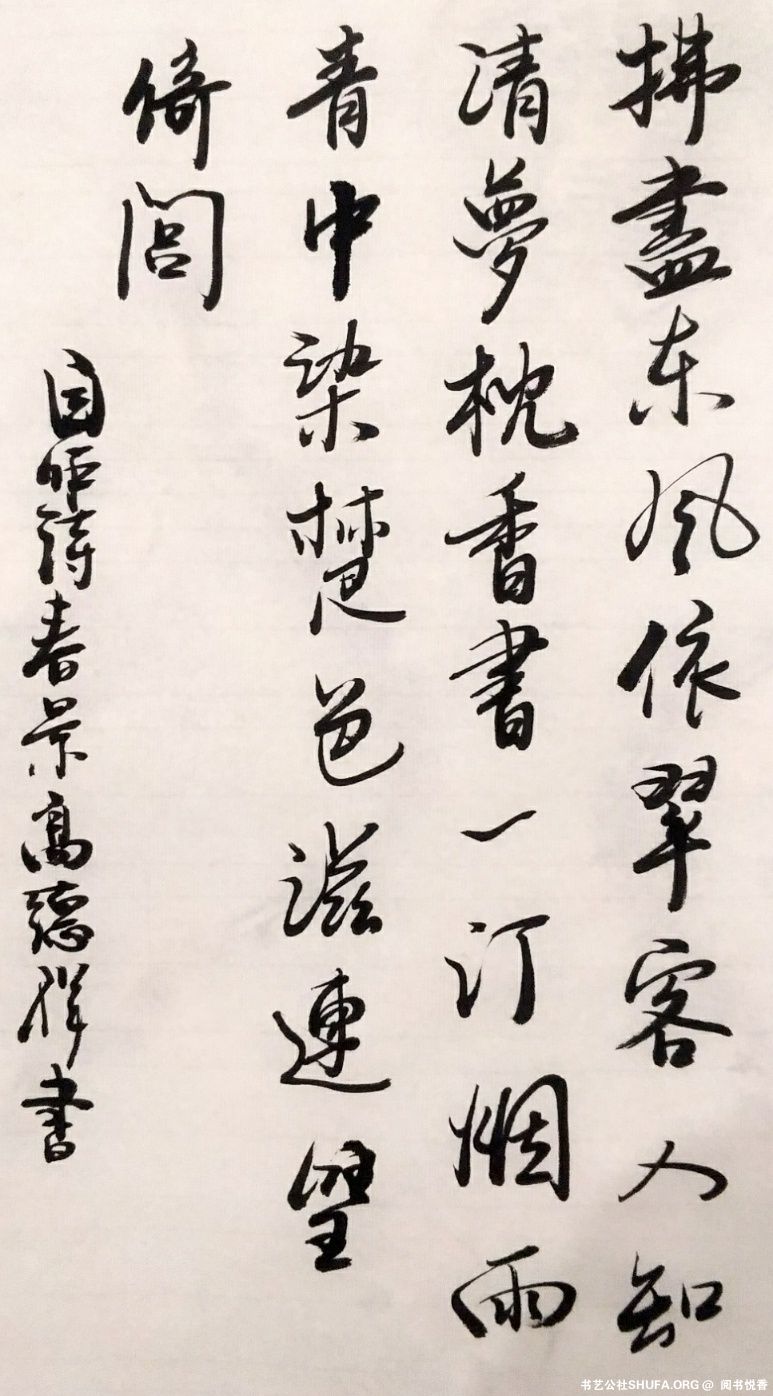 拂盡东风依翠客人知
清夢枕香書一汀烟雨
青中染楚色滋連望
倚閭
自吟詩春景高德祥書
书艺公社SHUFA.ORG @ 阅书悦香